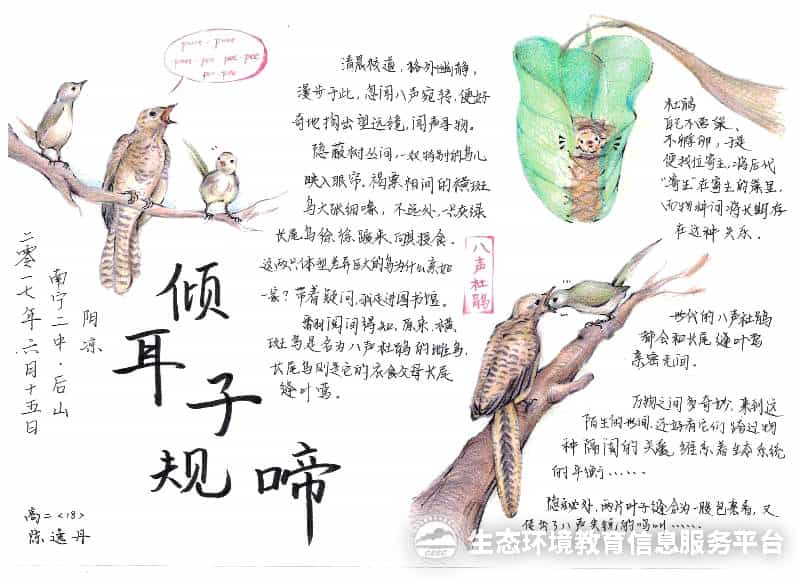 pwee - pwee
pwee pee pee-pee-pee
pee-pee
清晨校道，格外幽静，
漫步于此，忽闻八声宛转，便好
奇地掏出望远镜，闻声寻物。
隐蔽树丛间，一奴特别的鸟儿
映入眼帘，褐栗相间的横斑
鸟大张细喙，不远处，一只灰绿
长尾鸟徐徐踱来，向里授食。
这两只体型差异巨大的鸟为什么亲如
一家？带着疑问，我走进图书馆。
翻阅间得知，原来，横
斑鸟是名为八声杜鹃的雌鸟，
长尾鸟则是它的衣食父母长尾
缝叶莺。
八声杜鹃
杜鹃
自己不营巢，
不孵卵，于是
便找位寄主，将后代
“寄生”在寄主的巢里，
而物种间将长期存
在这种关系。
世代的八声杜鹃
都会和长尾缝叶莺
亲密无间。
万物之间多奇妙，来到这
陌生的世间，还好有它们跨过物
种隔阂的关爱，维系着生态系统
的平衡……
隐秘处，两片叶子缝合为一腹包裹着，又
传出了八声失魄的鸣叫……
倾
耳
子
规
啼
二零一七年六月十五日
南宁二中·后山
阴凉
高二<18>
陈逸丹
CEEC
生态环境教育信息服务平台